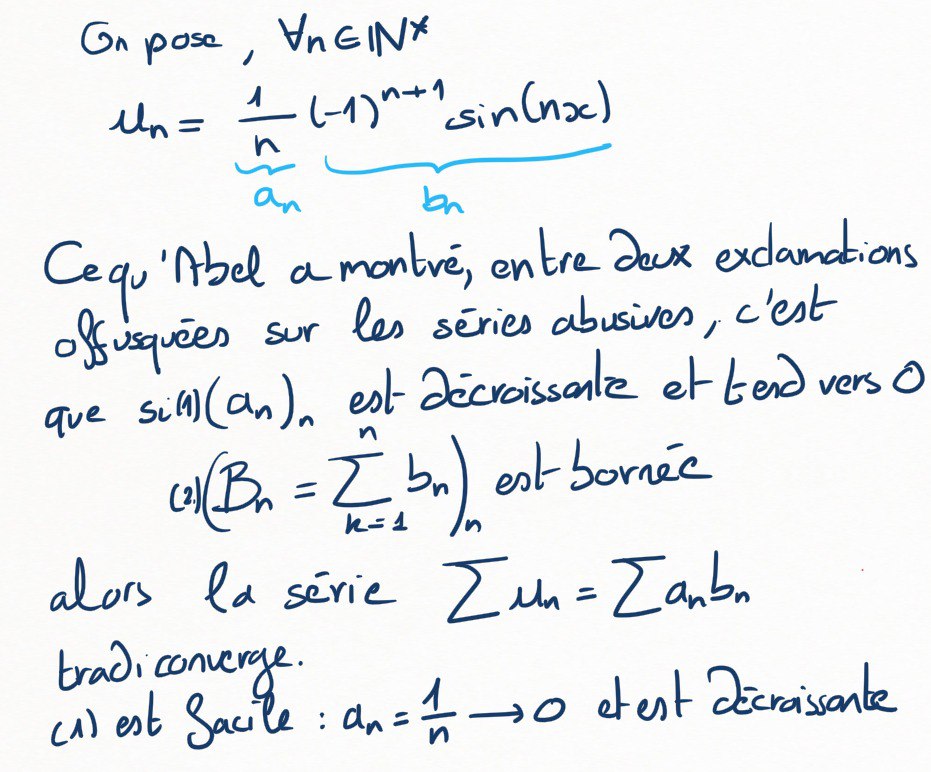 On pose, ∀n∈ℕ*
uₙ = 1/n (-1)ⁿ⁺¹ sin(nx)
aₙ bₙ
Ce qu'Abel a montré, entre deux exclamations
offusquées sur les séries abusives, c'est
que si (1) (aₙ)ₙ est décroissante et tend vers 0
(2) (Bₙ = ∑ₖ₌₁ⁿ bₙ)ₙ est bornée
alors la série ∑uₙ = ∑aₙbₙ
tradiconverge.
(1) est facile : aₙ = 1/n → 0 et est décroissante